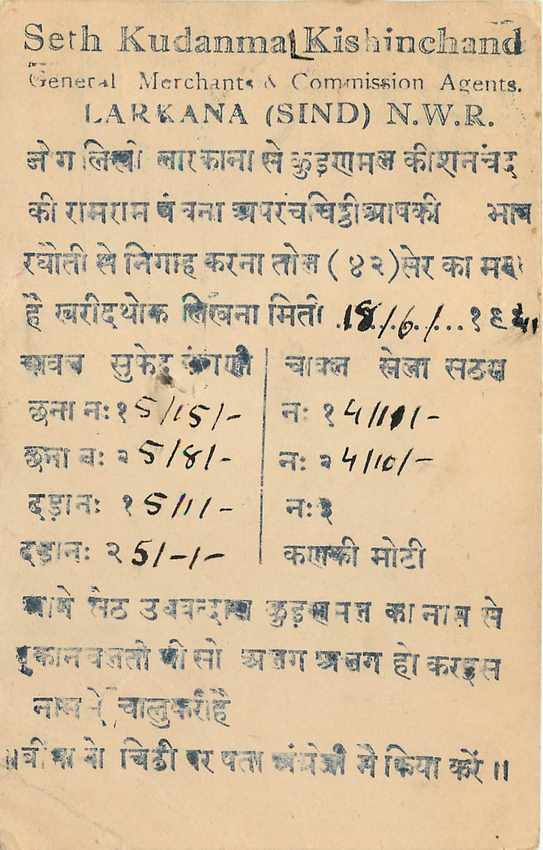 Seth Kudanmal Kishinchand
General Merchants & Commission Agents.
LARKANA (SIND) N.W.R.
जोग लिखी लारकाना से कुड़णमल कीशनचंद
की रामराम वंचना अपरंच चिट्ठी आपकी भाव
रवौती से निगाह करना तोल (४२) सेर का मण
है खरीद थोक लिखना मिती 18/6/...१९41
चावल सुफेद कंगणी | चावल सेला सठरा
छना नः १ 5/15/- | नः १ 4/11/-
छना नः २ 5/8/- | नः २ 4/10/-
दड़ा नः १ 5/1/- | नः ३
दड़ा नः २ 5/-/- | कणकी मोटी
आगे सेठ कुड़णमल का नाम से
दुकान चलती थी सो अलग अलग हो कर इस
नाम से चालु करी है
॥ बीमा वो चिठी पर पता अंग्रेजी मै किया करें ॥